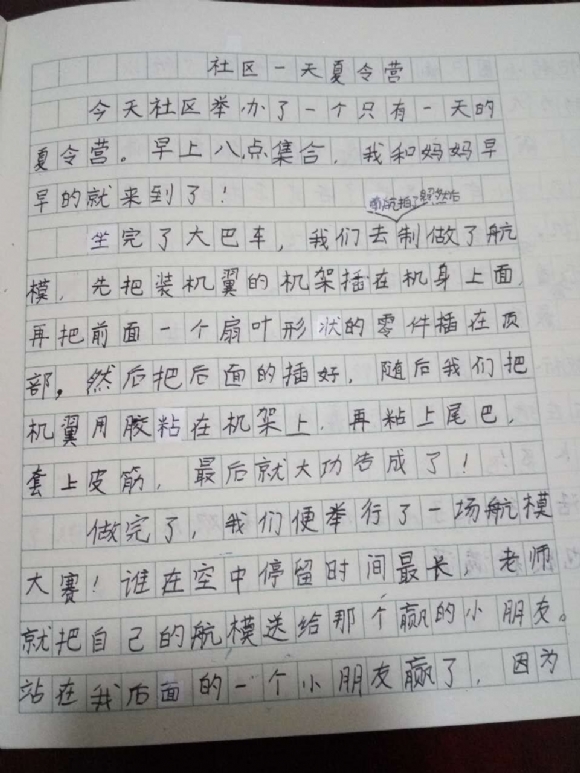 社区一天夏令营
今天社区举办了一个只有一天的
夏令营。早上八点集合，我和妈妈早
早的就来到了！
坐完了大巴车，我们去制做了航
模，先把装机翼的机架插在机身上面，
再把前面一个扇叶形状的零件插在顶
部，然后把后面的插好，随后我们把
机翼用胶粘在机架上，再粘上尾巴，
套上皮筋，最后就大功告成了！
做完了，我们便举行了一场航模
大赛！谁在空中停留时间最长，老师
就把自己的航模送给那个赢的小朋友。
站在我后面的一个小朋友赢了，因为